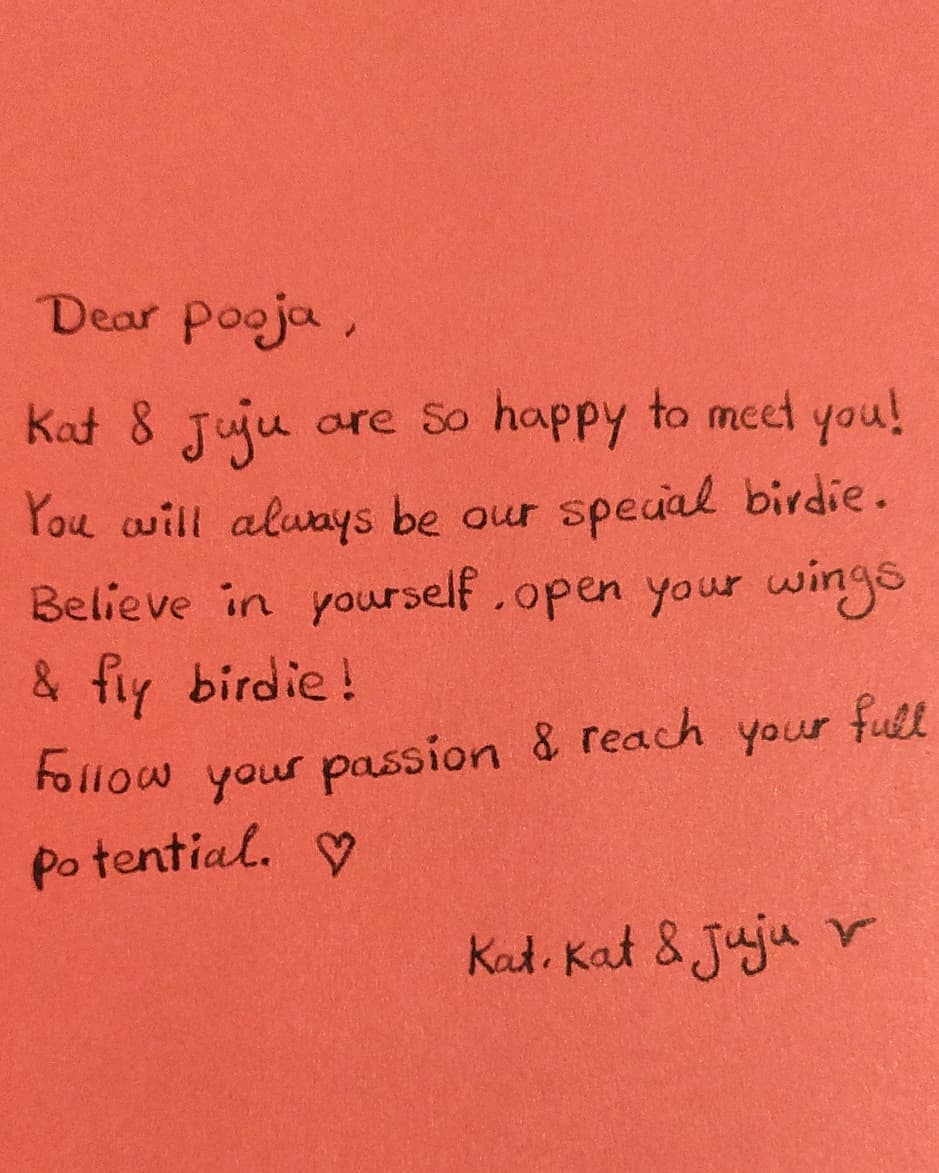 Dear pooja,
Kat & Juju are so happy to meet you!
You will always be our special birdie.
Believe in yourself, open your wings
& fly birdie!
Follow your passion & reach your full
potential. ♡
Kat. Kat & Juju